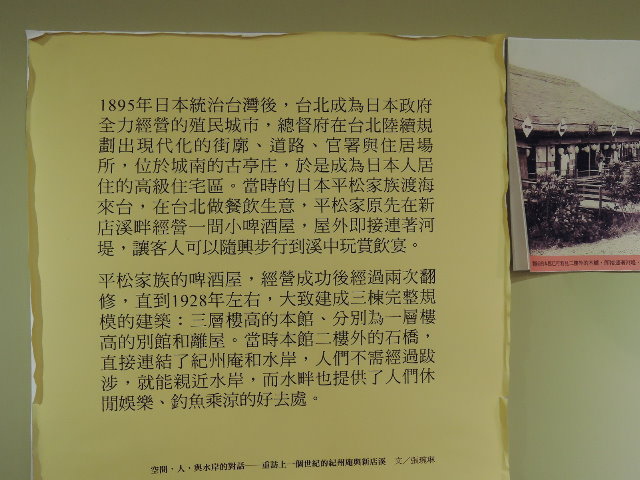 1895年日本統治台灣後，台北成為日本政府
全力經營的殖民城市，總督府在台北陸續規
劃出現代化的街廓、道路、官署與住居場
所，位於城南的古亭庄，於是成為日本人居
住的高級住宅區。當時的日本平松家族渡海
來台，在台北做餐飲生意，平松家原先在新
店溪畔經營一間小啤酒屋，屋外即接連著河
堤，讓客人可以隨興步行到溪中玩賞飲宴。
平松家族的啤酒屋，經營成功後經過兩次翻
修，直到1928年左右，大致建成三棟完整規
模的建築：三層樓高的本館、分別為一層樓
高的別館和離屋。當時本館二樓外的石橋，
直接連結了紀州庵和水岸，人們不需經過跋
涉，就能親近水岸，而水畔也提供了人們休
閒娛樂、釣魚乘涼的好去處。
空間，人，與水岸的對話──重訪上一個世紀的紀州庵與新店溪 文／張琬琳